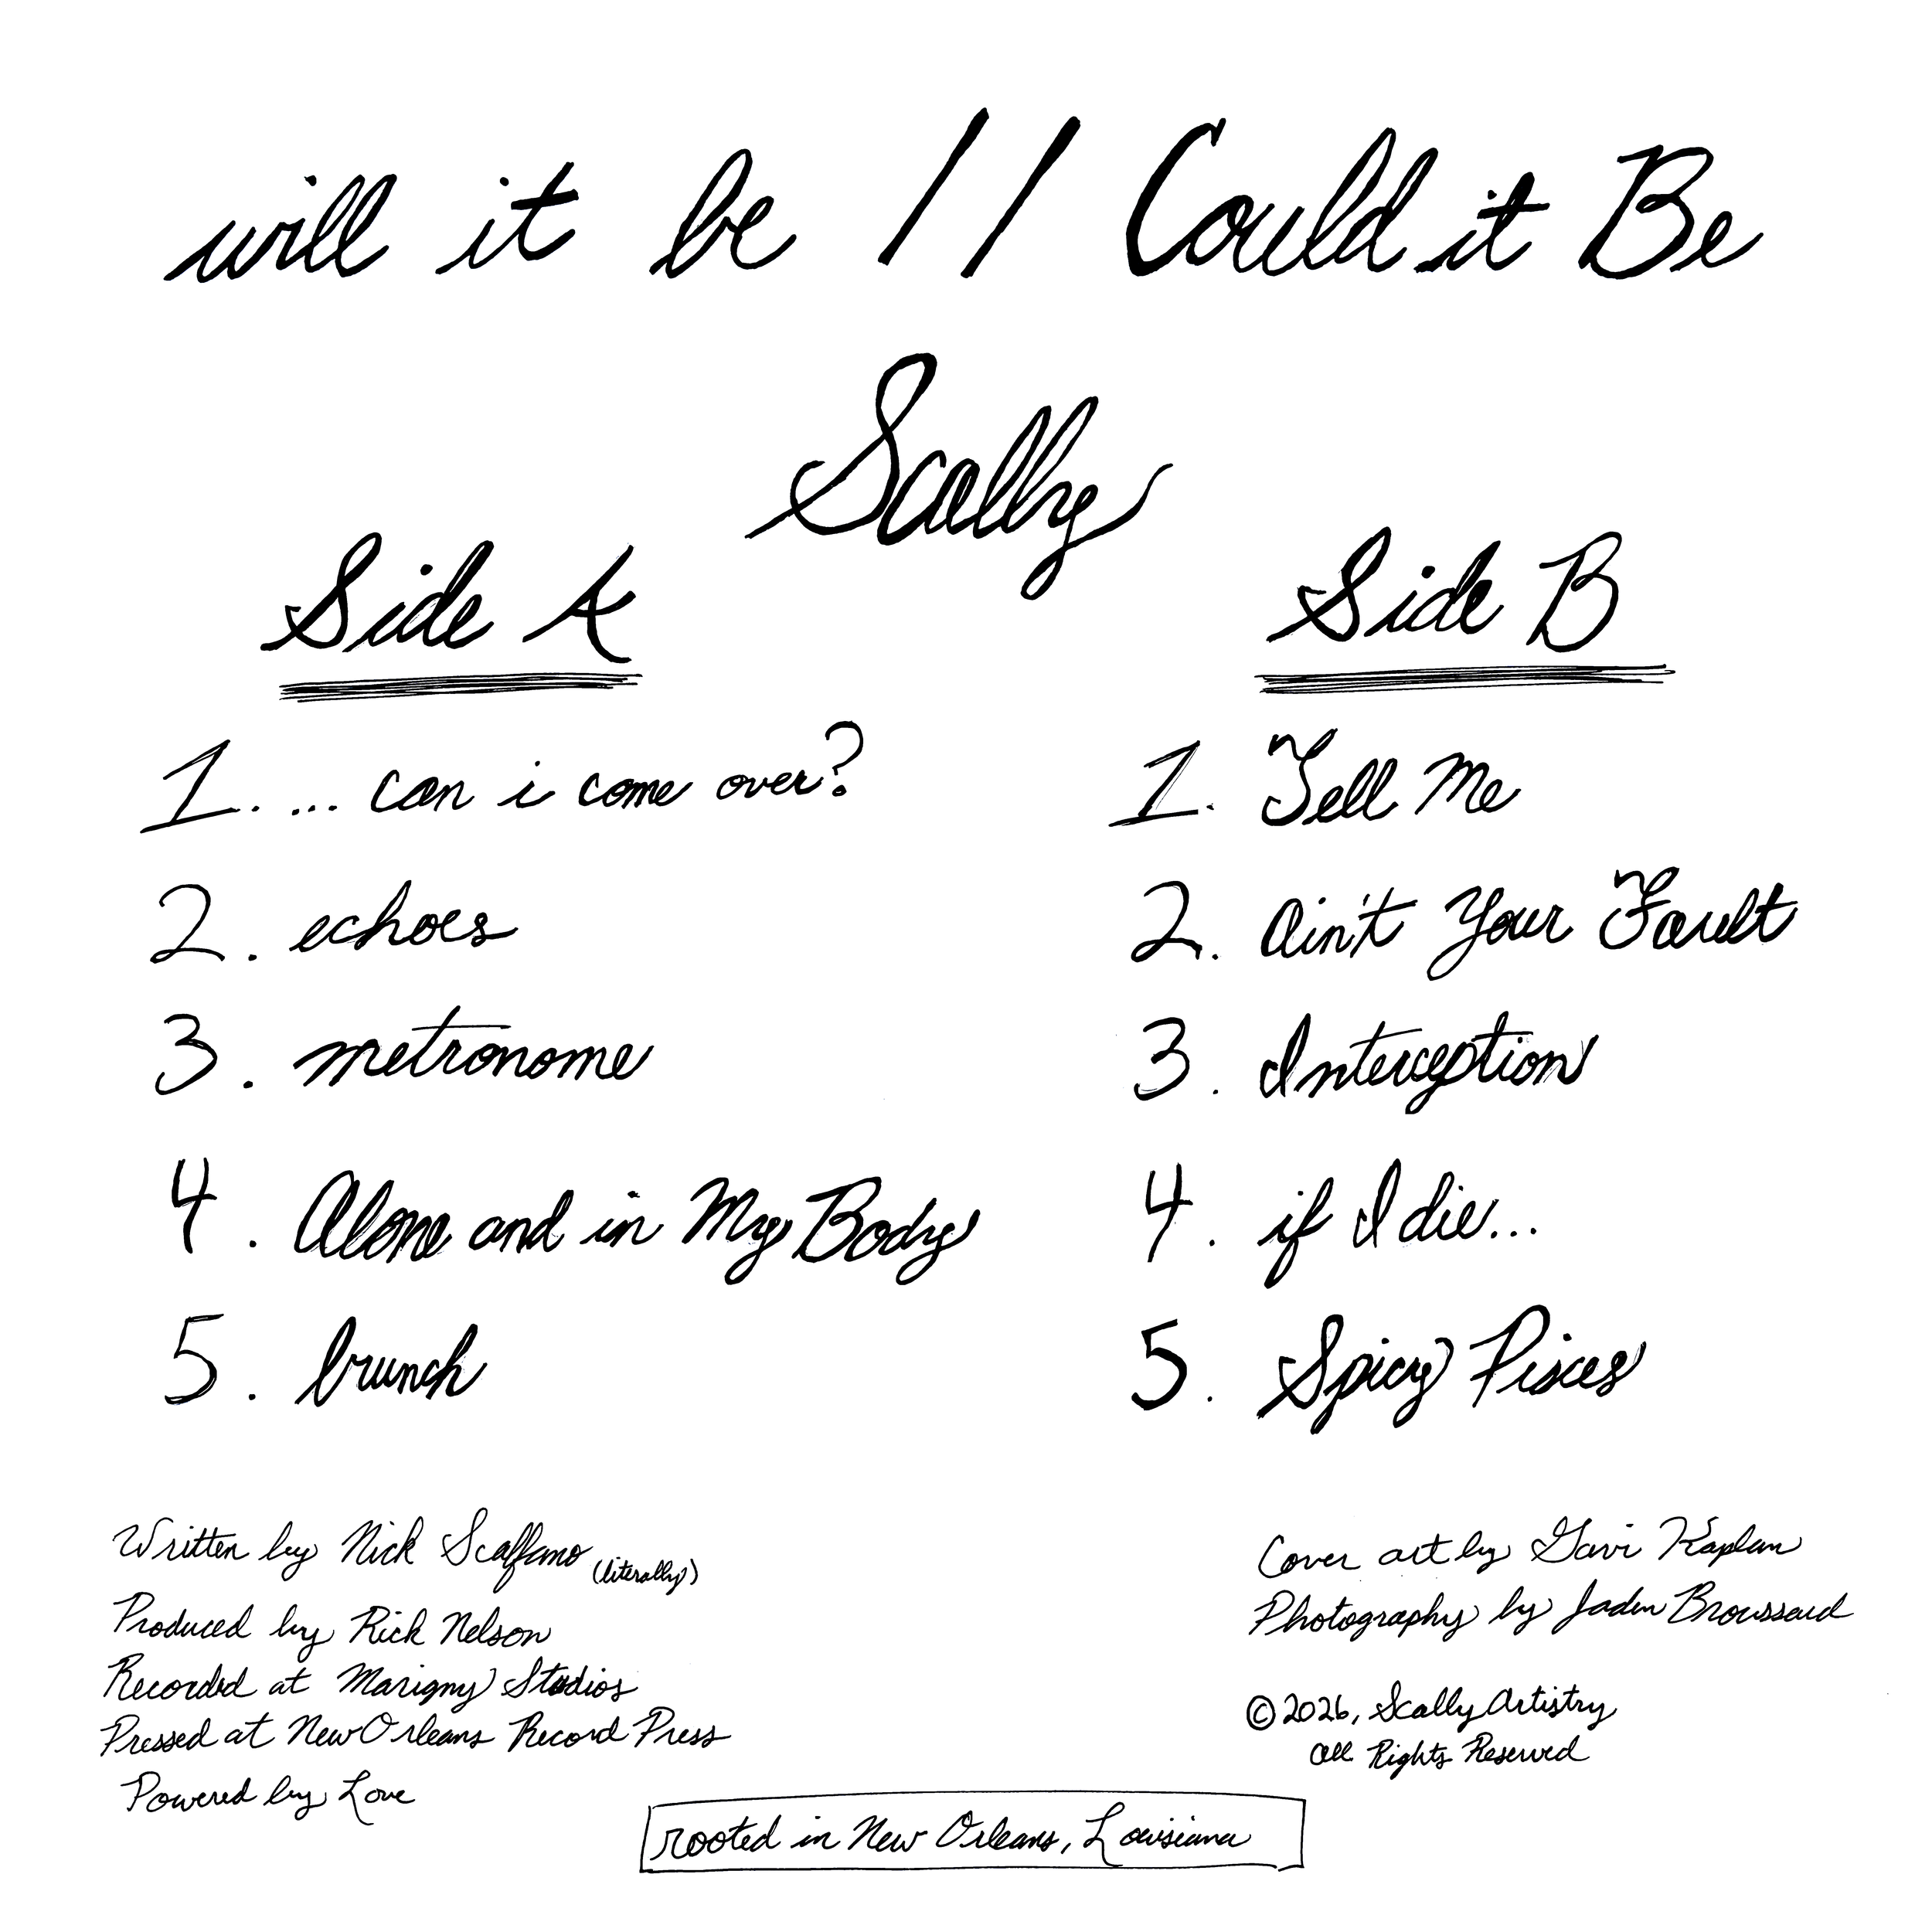 will it be // Could it Be
Scally
Side A
1. ... can i come over?
2. echoes
3. metronome
4. Alone and in My Body
5. brunch
Side B
1. Tell Me
2. Ain't Your Fault
3. Interception
4. if I die...
5. Spicy Pisces
Written by Nick Scaffano (literally)
Produced by Rick Nelson
Recorded at Marigny Studios
Pressed at New Orleans Record Press
Powered by Love
Cover art by Gavi Kaplan
Photography by Jaden Broussard
©2026, Scally Artistry
All Rights Reserved
rooted in New Orleans, Louisiana